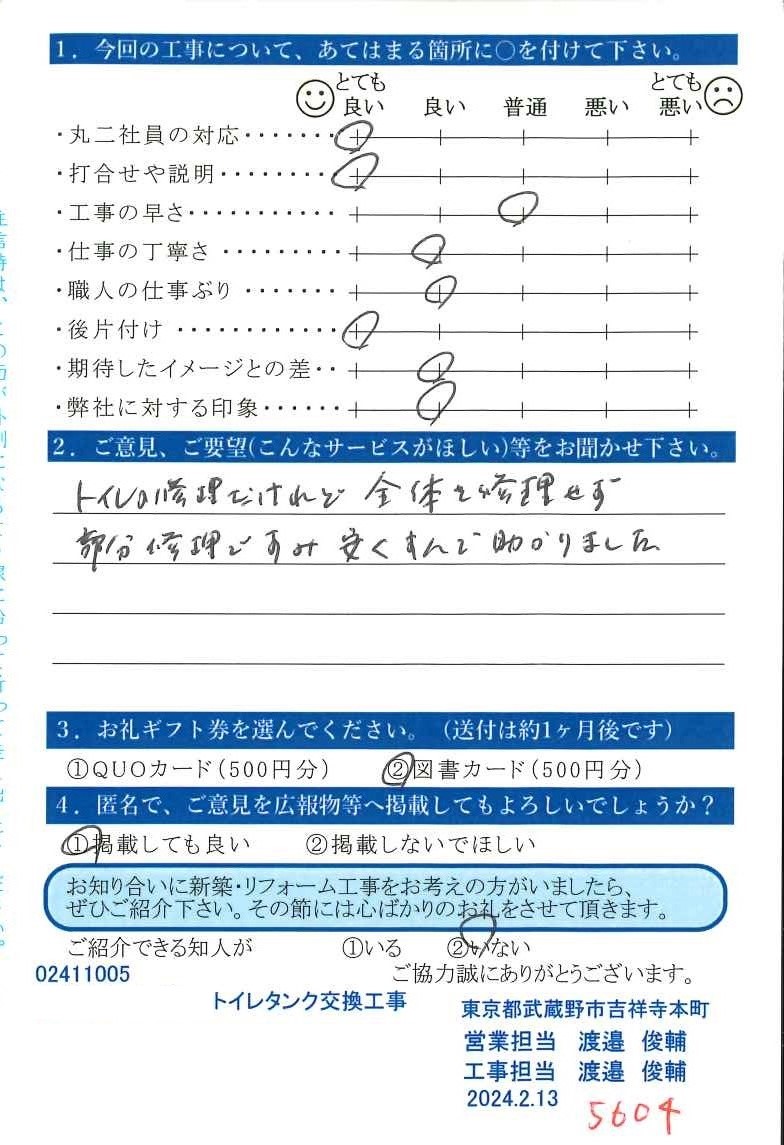 1．今回の工事について、あてはまる箇所に○を付けて下さい。
とても良い 良い 普通 悪い とても悪い
・丸二社員の対応・・・・・・・
・打合せや説明・・・・・・・・
・工事の早さ・・・・・・・・・・・
・仕事の丁寧さ・・・・・・・・
・職人の仕事ぶり・・・・・・・
・後片付け・・・・・・・・・・・・
・期待したイメージとの差・・
・弊社に対する印象・・・・・・
2．ご意見、ご要望(こんなサービスがほしい)等をお聞かせ下さい。
トイレの修理だけれど 全体を修理せず
部分修理ですみ 安くすんで助かりました
3．お礼ギフト券を選んでください。（送付は約1ヶ月後です）
①QUOカード（500円分） ②図書カード（500円分）
4．匿名で、ご意見を広報物等へ掲載してもよろしいでしょうか？
①掲載しても良い ②掲載しないでほしい
お知り合いに新築・リフォーム工事をお考えの方がいましたら、
ぜひご紹介下さい。その節には心ばかりのお礼をさせて頂きます。
ご紹介できる知人が ①いる ②いない
02411005
ご協力誠にありがとうございます。
トイレタンク交換工事
東京都武蔵野市吉祥寺本町
営業担当 渡邉 俊輔
工事担当 渡邉 俊輔
2024.2.13
5604